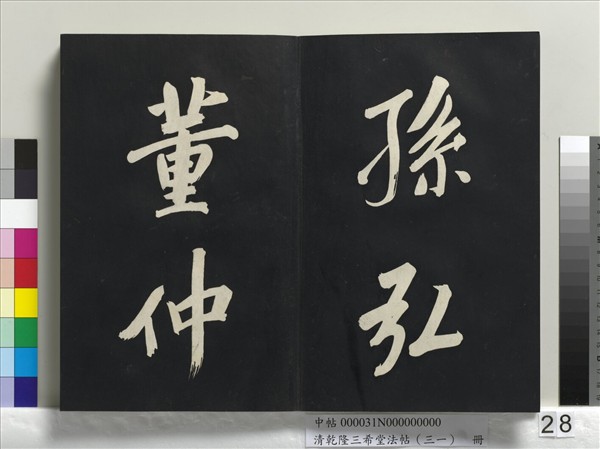 孫弘
董仲
中帖 000031N000000000
清乾隆三希堂法帖(三一) 冊
28